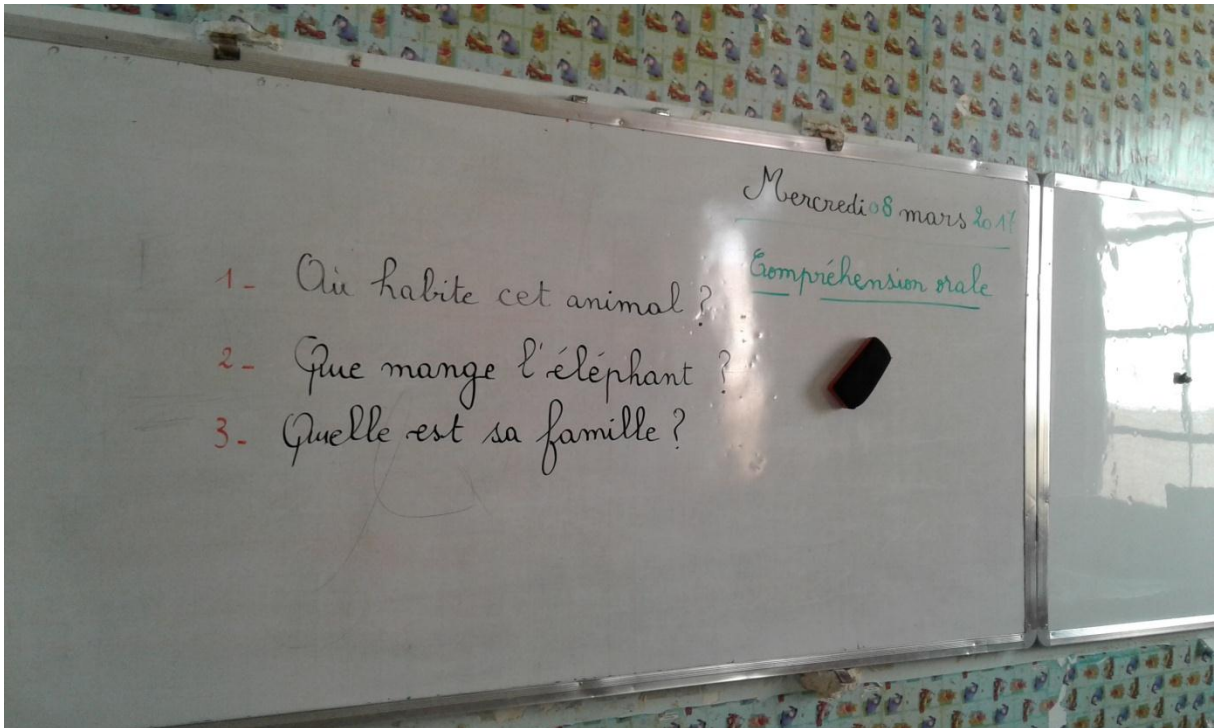 Mercredi 08 mars 2017
Compréhension orale
1- Où habite cet animal ?
2- Que mange l'éléphant ?
3- Quelle est sa famille ?